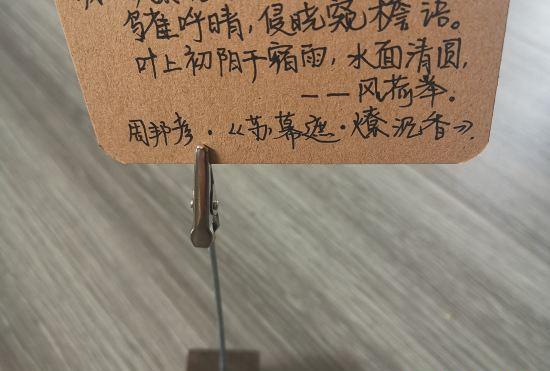 鸟雀呼晴，侵晓窥檐语。
叶上初阳干宿雨，水面清圆，
——风荷举。
周邦彦·《苏幕遮·燎沉香》.